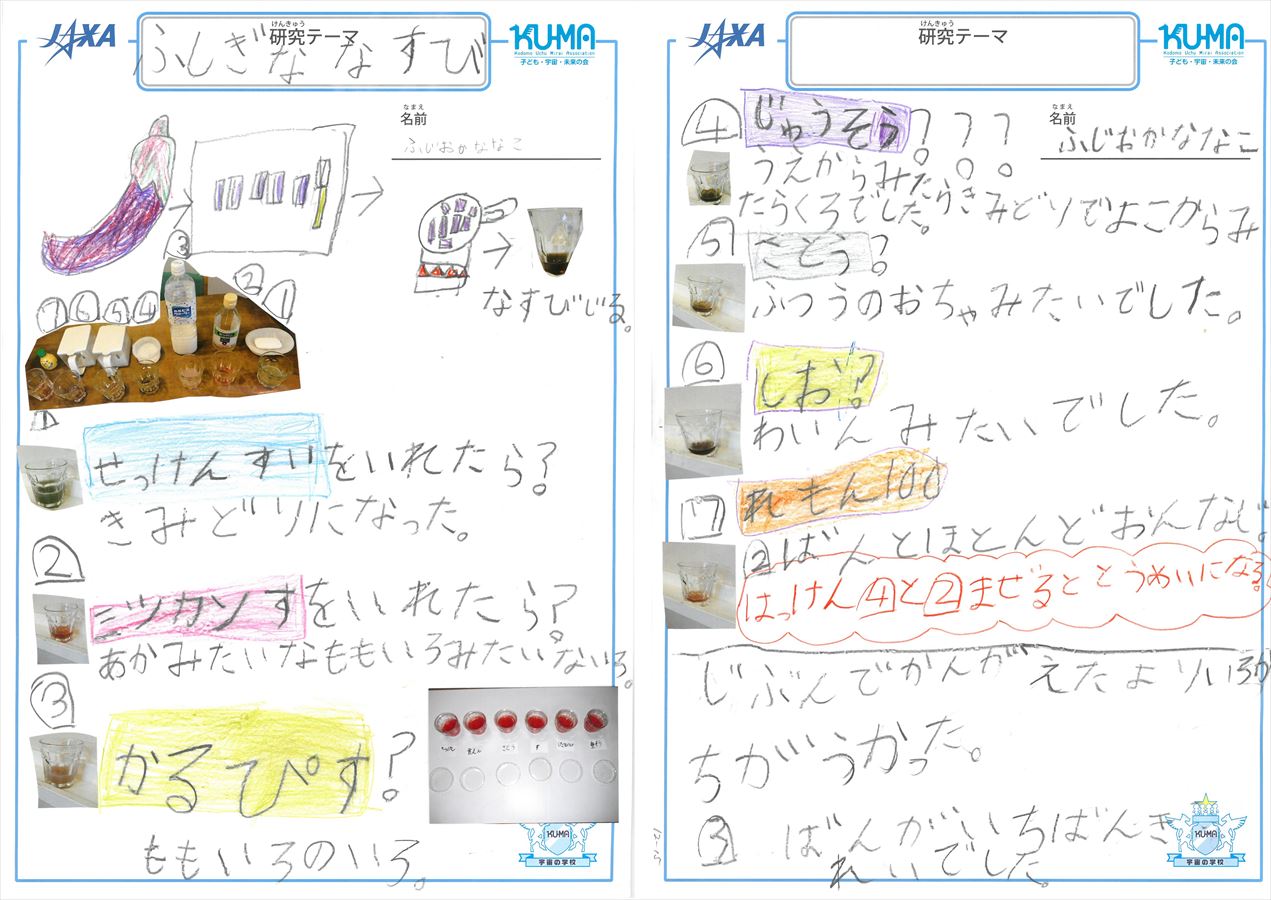 JAXA
けんきゅう
研究テーマ
ふしぎな なすび
KUMA
Kodomo Uchu Mirai Association
子ども・宇宙・未来の会
なまえ
名前
ふじおかななこ
なすびじる。
⑦ ⑥ ⑤ ④ ③ ② ①
①
せっけんすいをいれたら?
きみどりになった。
②
ミツカンすをいれたら?
あかみたいなももいろみたいないろ。
③
かるぴす?
ももいろのいろ。
KUMA
宇宙の学校
JAXA
けんきゅう
研究テーマ
KUMA
Kodomo Uchu Mirai Association
子ども・宇宙・未来の会
なまえ
名前
ふじおかななこ
④ じゅうそう???
うえからみた
たらくろでした。うきみどりでよこからみ
⑤ さとう?
ふつうのおちゃみたいでした。
⑥ しお?
わいんみたいでした。
⑦ れもん100
②ばんとほとんどおんなじ。
はっけん④と②まぜるととうめいになる。
じぶんでかんがえたよりいろが
ちがうかった。
③ばんがいちばんき
れいでした。
KUMA
宇宙の学校